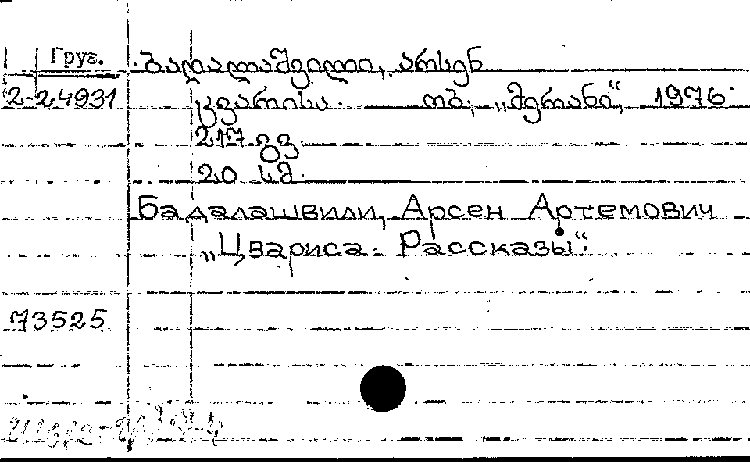 Груз. ბადალაშვილი, არსენ
2-24931 ცვარისა. თბ., „მერანი“, 1976.
217 გვ
20 სმ.
Бадалашвили, Арсен Артемович
„Цвариса. Рассказы“.
73525